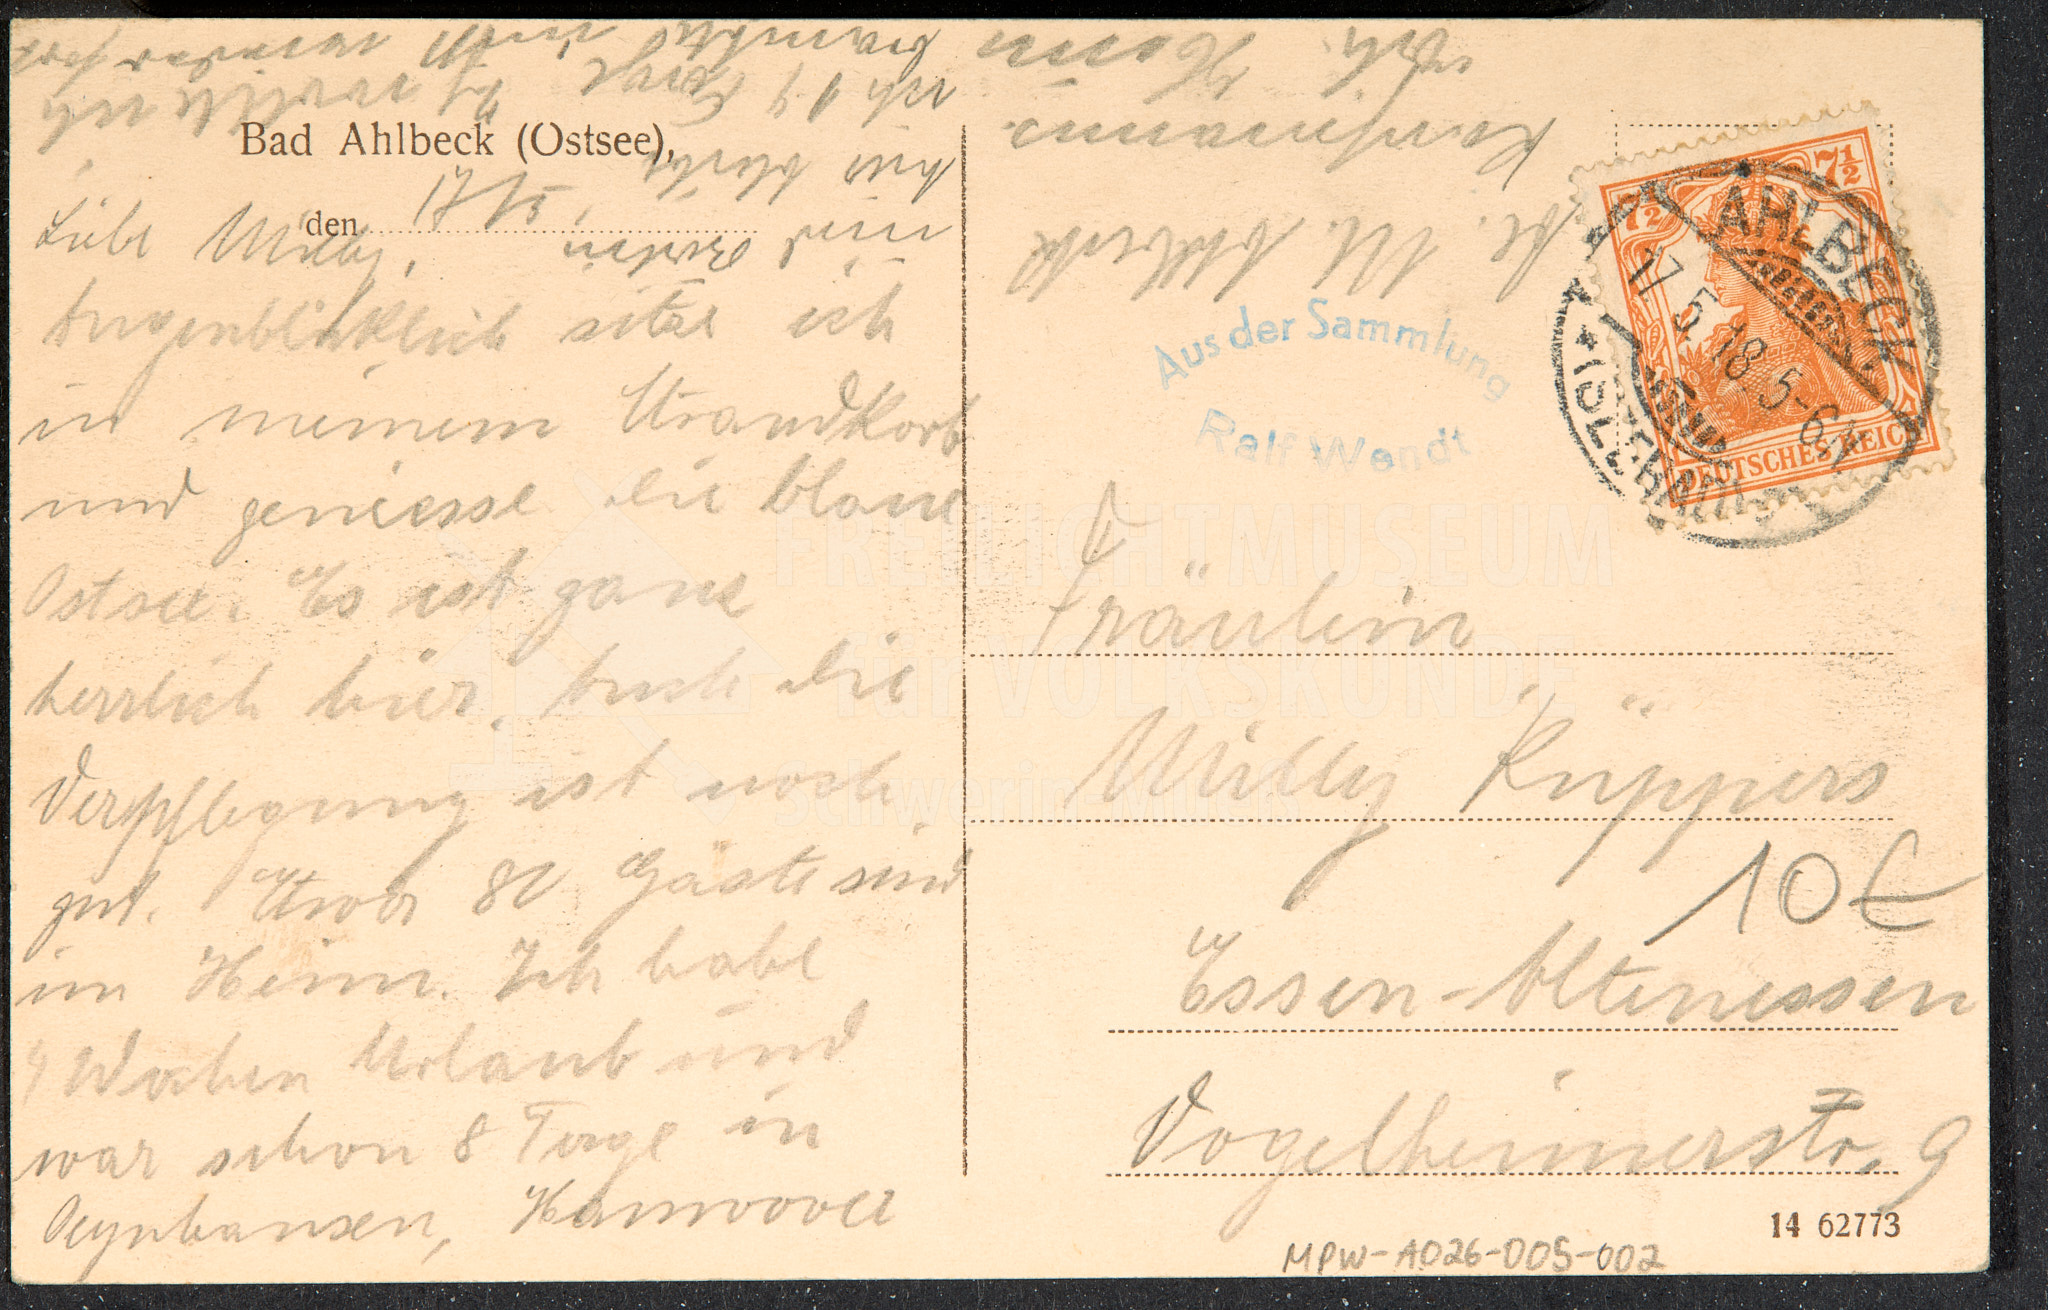 Bad Ahlbeck (Ostsee),
den 17/5.
Liebe Milly,
Augenblicklich sitze ich
in meinem Strandkorb
und geniesse die blaue
Ostsee. Es ist ganz
herrlich hier. Auch die
Verpflegung ist noch
gut. Etwa 80 Gäste sind
im Heim. Ich habe
4 Wochen Urlaub und
war schon 8 Tage in
Oeynhausen, Hannover
und Berlin
hier bleibe
ich 14 Tage
Aus der Sammlung
Ralf Wendt
AHLBECK
17.5.18 5-6N
* (SEEBAD)
7½ 7½
DEUTSCHES REICH
Fräulein
Milly Küppers
Essen-Altenessen
Vogelheimerstr. 9
10 €
14 62773
MPW-A026-005-002
FREILICHTMUSEUM
für VOLKSKUNDE
Schwerin-Mueß